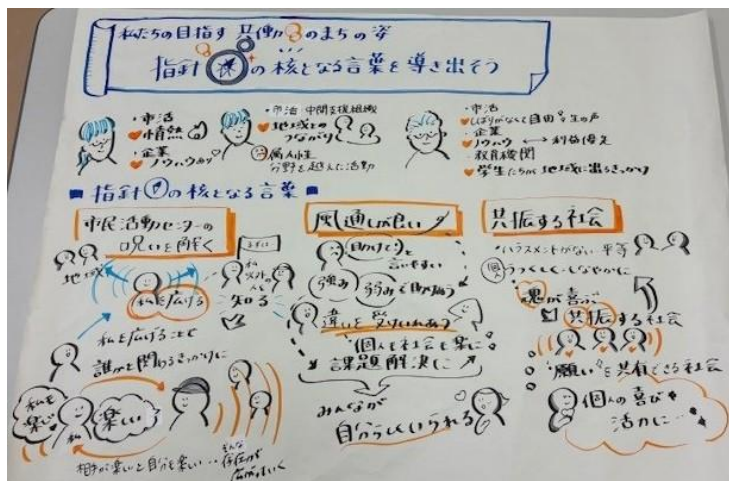 私たちの目指す 共働のまちの姿
指針の核となる言葉を導き出そう
・市活
情熱
・企業
ノウハウあり
・市活・中間支援組織
地域との
つながり
属人性
分野を越えた活動
・市活
しばりがなくて自由 学生の声
・企業
ノウハウ ⟷ 利益優先
・教育機関
学生たちが地域に出るきっかけ
■指針の核となる言葉■
市民活動センターの
呪いを解く
地域
私を広げる
知る
私を広げることで
誰かと関わるきっかけに
私も
楽しい
私
楽しい
相手が楽しいと自分も楽しい…
そんな
存在が
広がっていく
風通しが良い
助けて
と
言いやすい
強み
弱みで助け合う
違いを受け入れあう
個人も社会も楽に
課題解決に
みんなが
自分らしくいられる
共振する社会
・ハラスメントがない・平等
個人
うつくしく・しなやかに
魂が喜ぶ
共振する社会
"願い"を共有できる社会
個人の喜び
活力に…